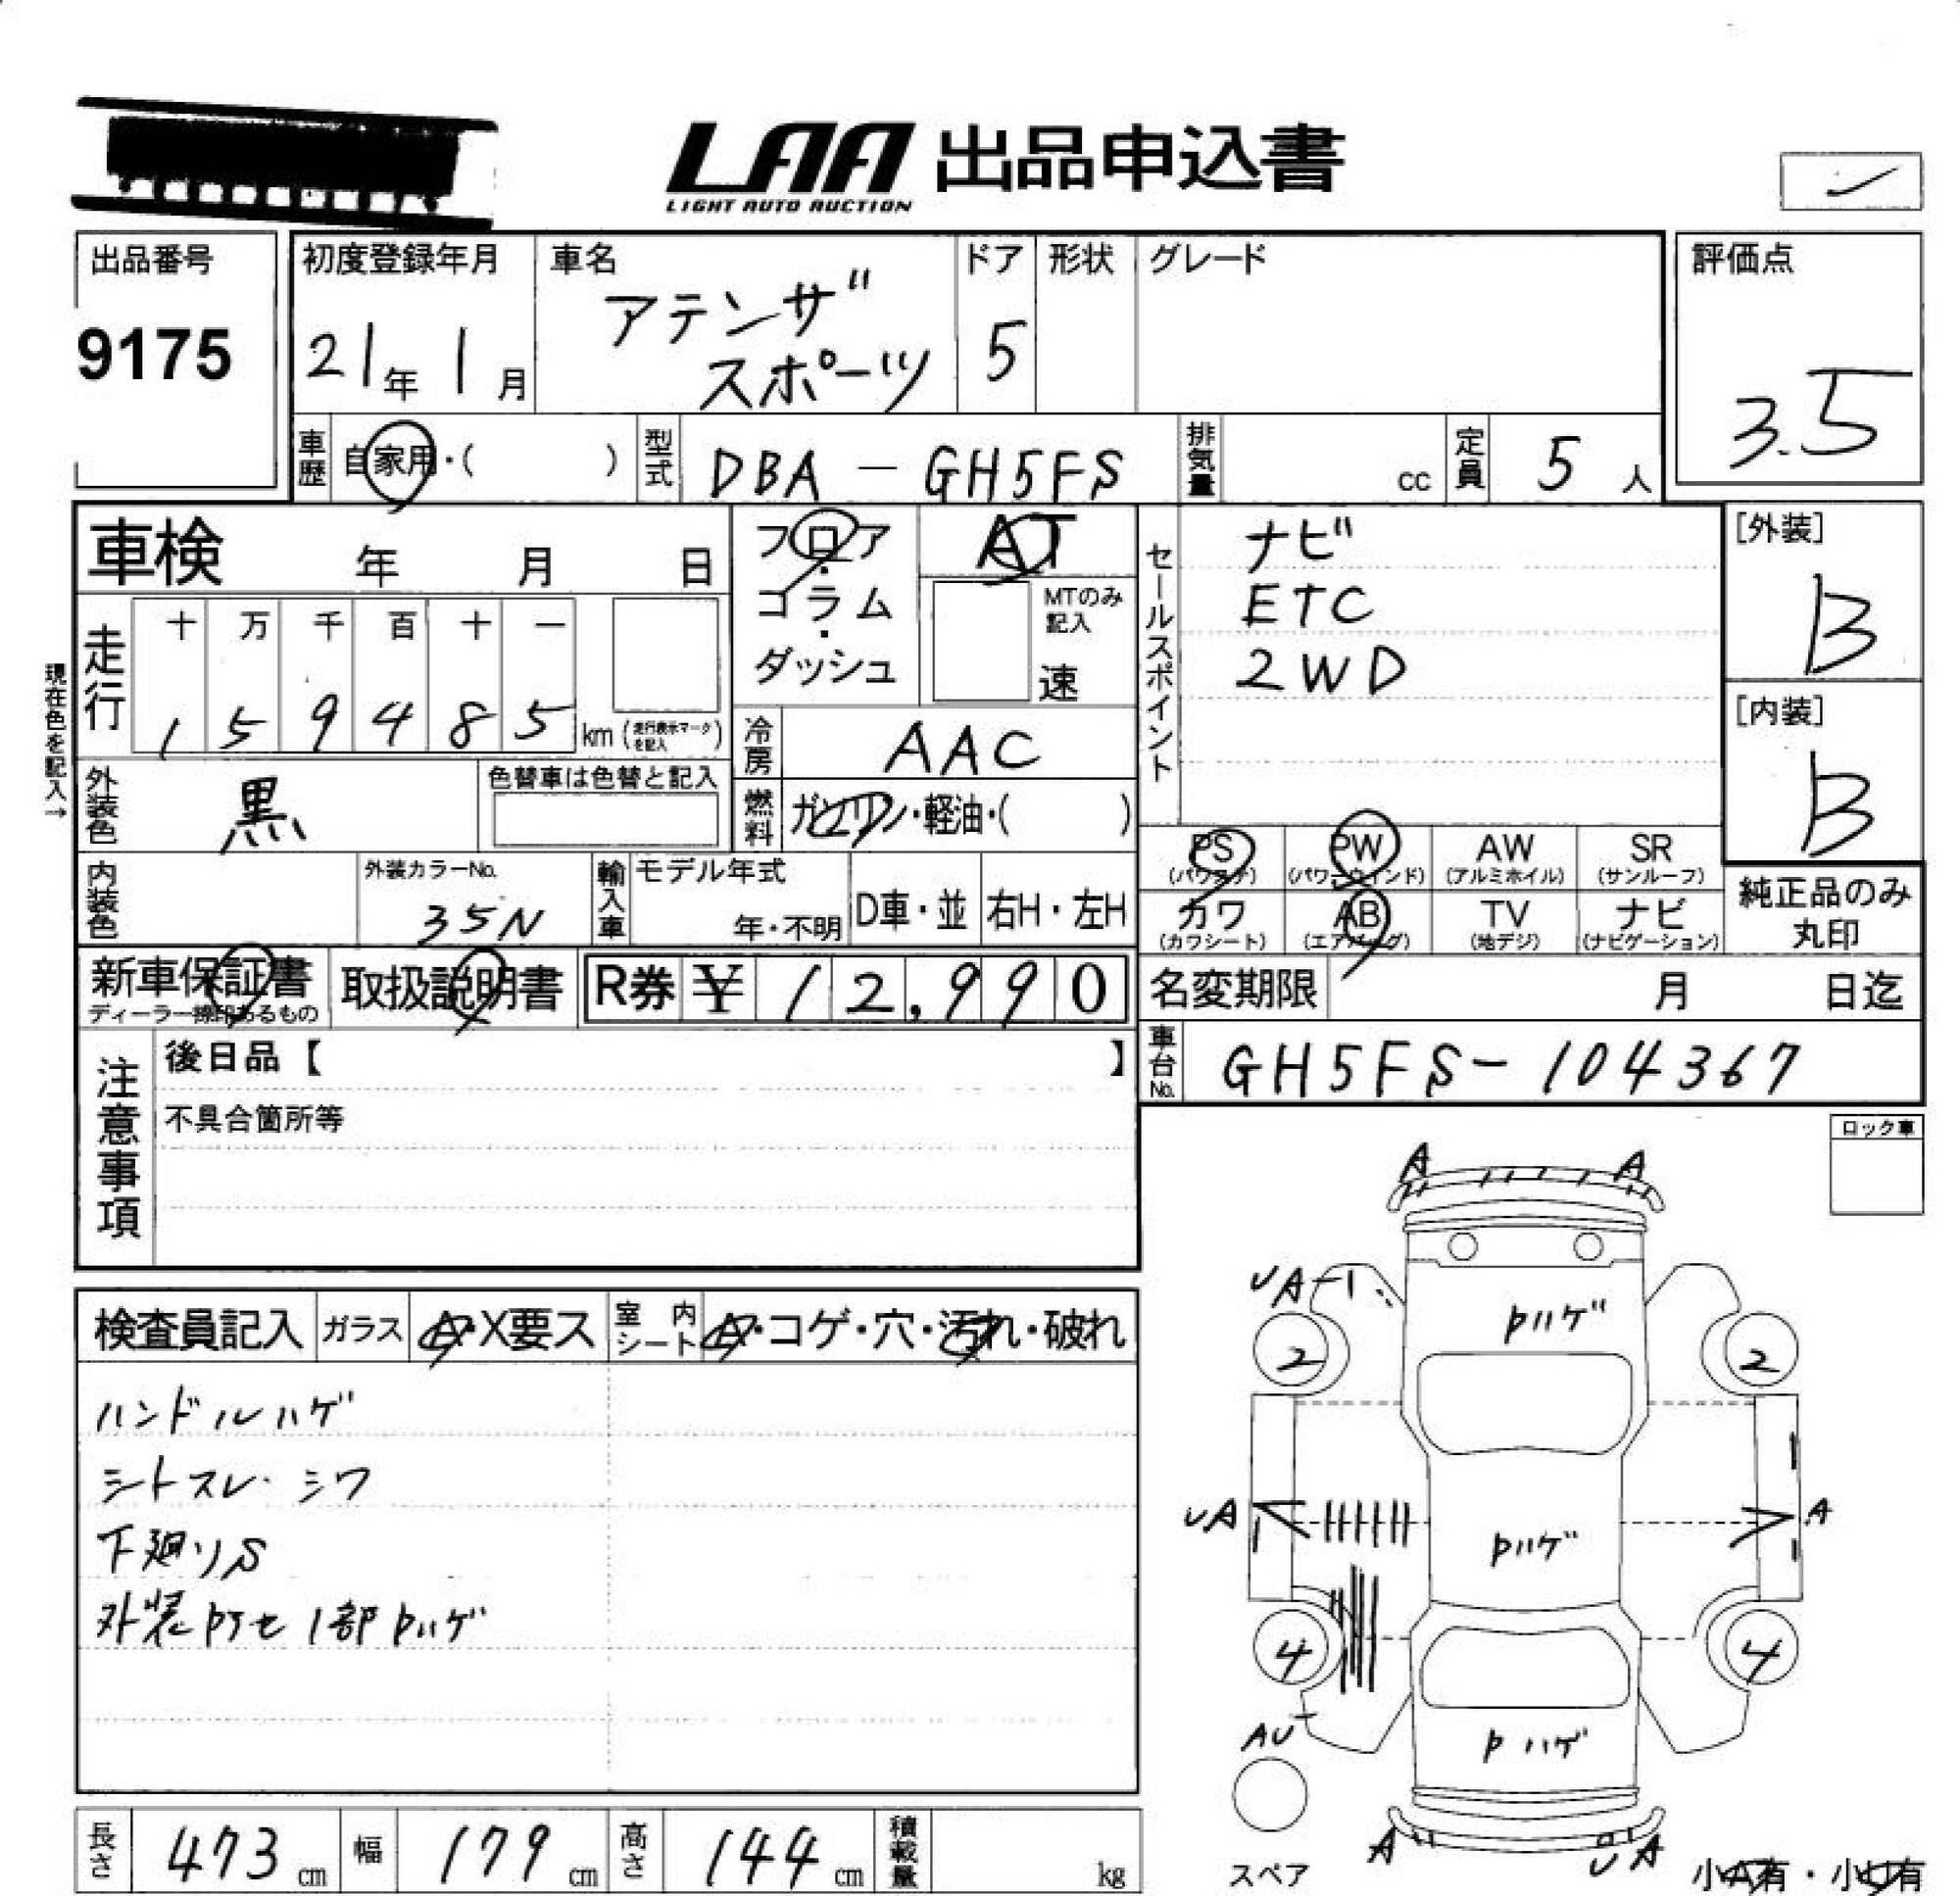 LAA 出品申込書
LIGHT AUTO AUCTION
出品番号
9175
初度登録年月
21年 1月
車名
アテンザ
スポーツ
ドア
5
形状
グレード
評価点
3.5
車歴 自家用・( )
型式 DBA-GH5FS
排気量 cc
定員 5人
車検 年 月 日
現在色を記入→
走行 十 万 千 百 十 一
1 5 9 4 8 5 km (走行表示マークを記入)
フロア・コラム・ダッシュ
AT
MTのみ記入
速
冷房 AAC
燃料 ガソリン・軽油・( )
セールスポイント
ナビ
ETC
2WD
[外装]
B
[内装]
B
外装色 黒
色替車は色替と記入
内装色
外装カラーNo.
35N
輸入車
モデル年式
年・不明
D車・並
右H・左H
PS (パワステ)
PW (パワーウインド)
AW (アルミホイル)
SR (サンルーフ)
カワ (カワシート)
AB (エアバッグ)
TV (地デジ)
ナビ (ナビゲーション)
純正品のみ
丸印
新車保証書
ディーラー捺印あるもの
取扱説明書
R券 ¥ 12,990
名変期限 月 日迄
車台No. GH5FS-104367
注意事項
後日品【 】
不具合箇所等
ロック車
検査員記入
ガラス A・X要ス
室内シート A・コゲ・穴・汚れ・破れ
ハンドルハゲ
シートスレ・シワ
下廻りS
外装Pヤセ1部Pハゲ
A A
UA-1
Pハゲ
2 2
UA A
Pハゲ
4 4
AU
Pハゲ
A UA
スペア
小A有・小U有
長さ 473cm
幅 179cm
高さ 144cm
積載量 kg